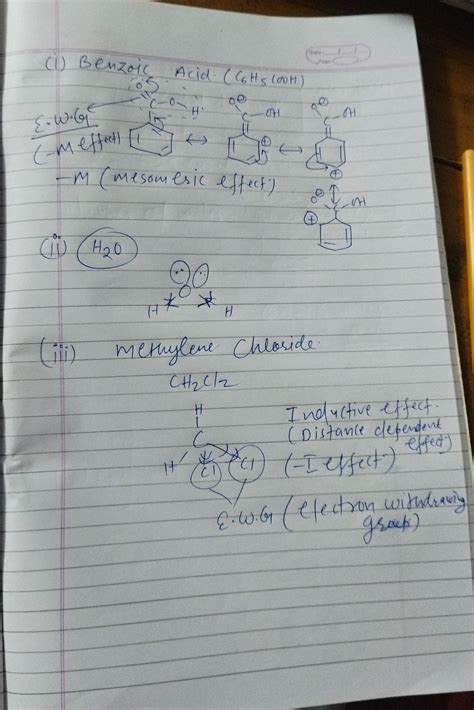 (i) Benzoic Acid (C6H5COOH)
O
C – O – H
E.W.G
(-M effect)
O⊖ C – OH ⊕
O⊖ C – OH ⊕
-M (mesomeric effect)
O⊖ C OH ⊕
(ii) H2O
O
H H
(iii) Methylene Chloride
CH2Cl2
H
C
H Cl Cl
Inductive effect.
(Distance dependent
effect)
(-I effect)
E.W.G (electron withdrawing
group)